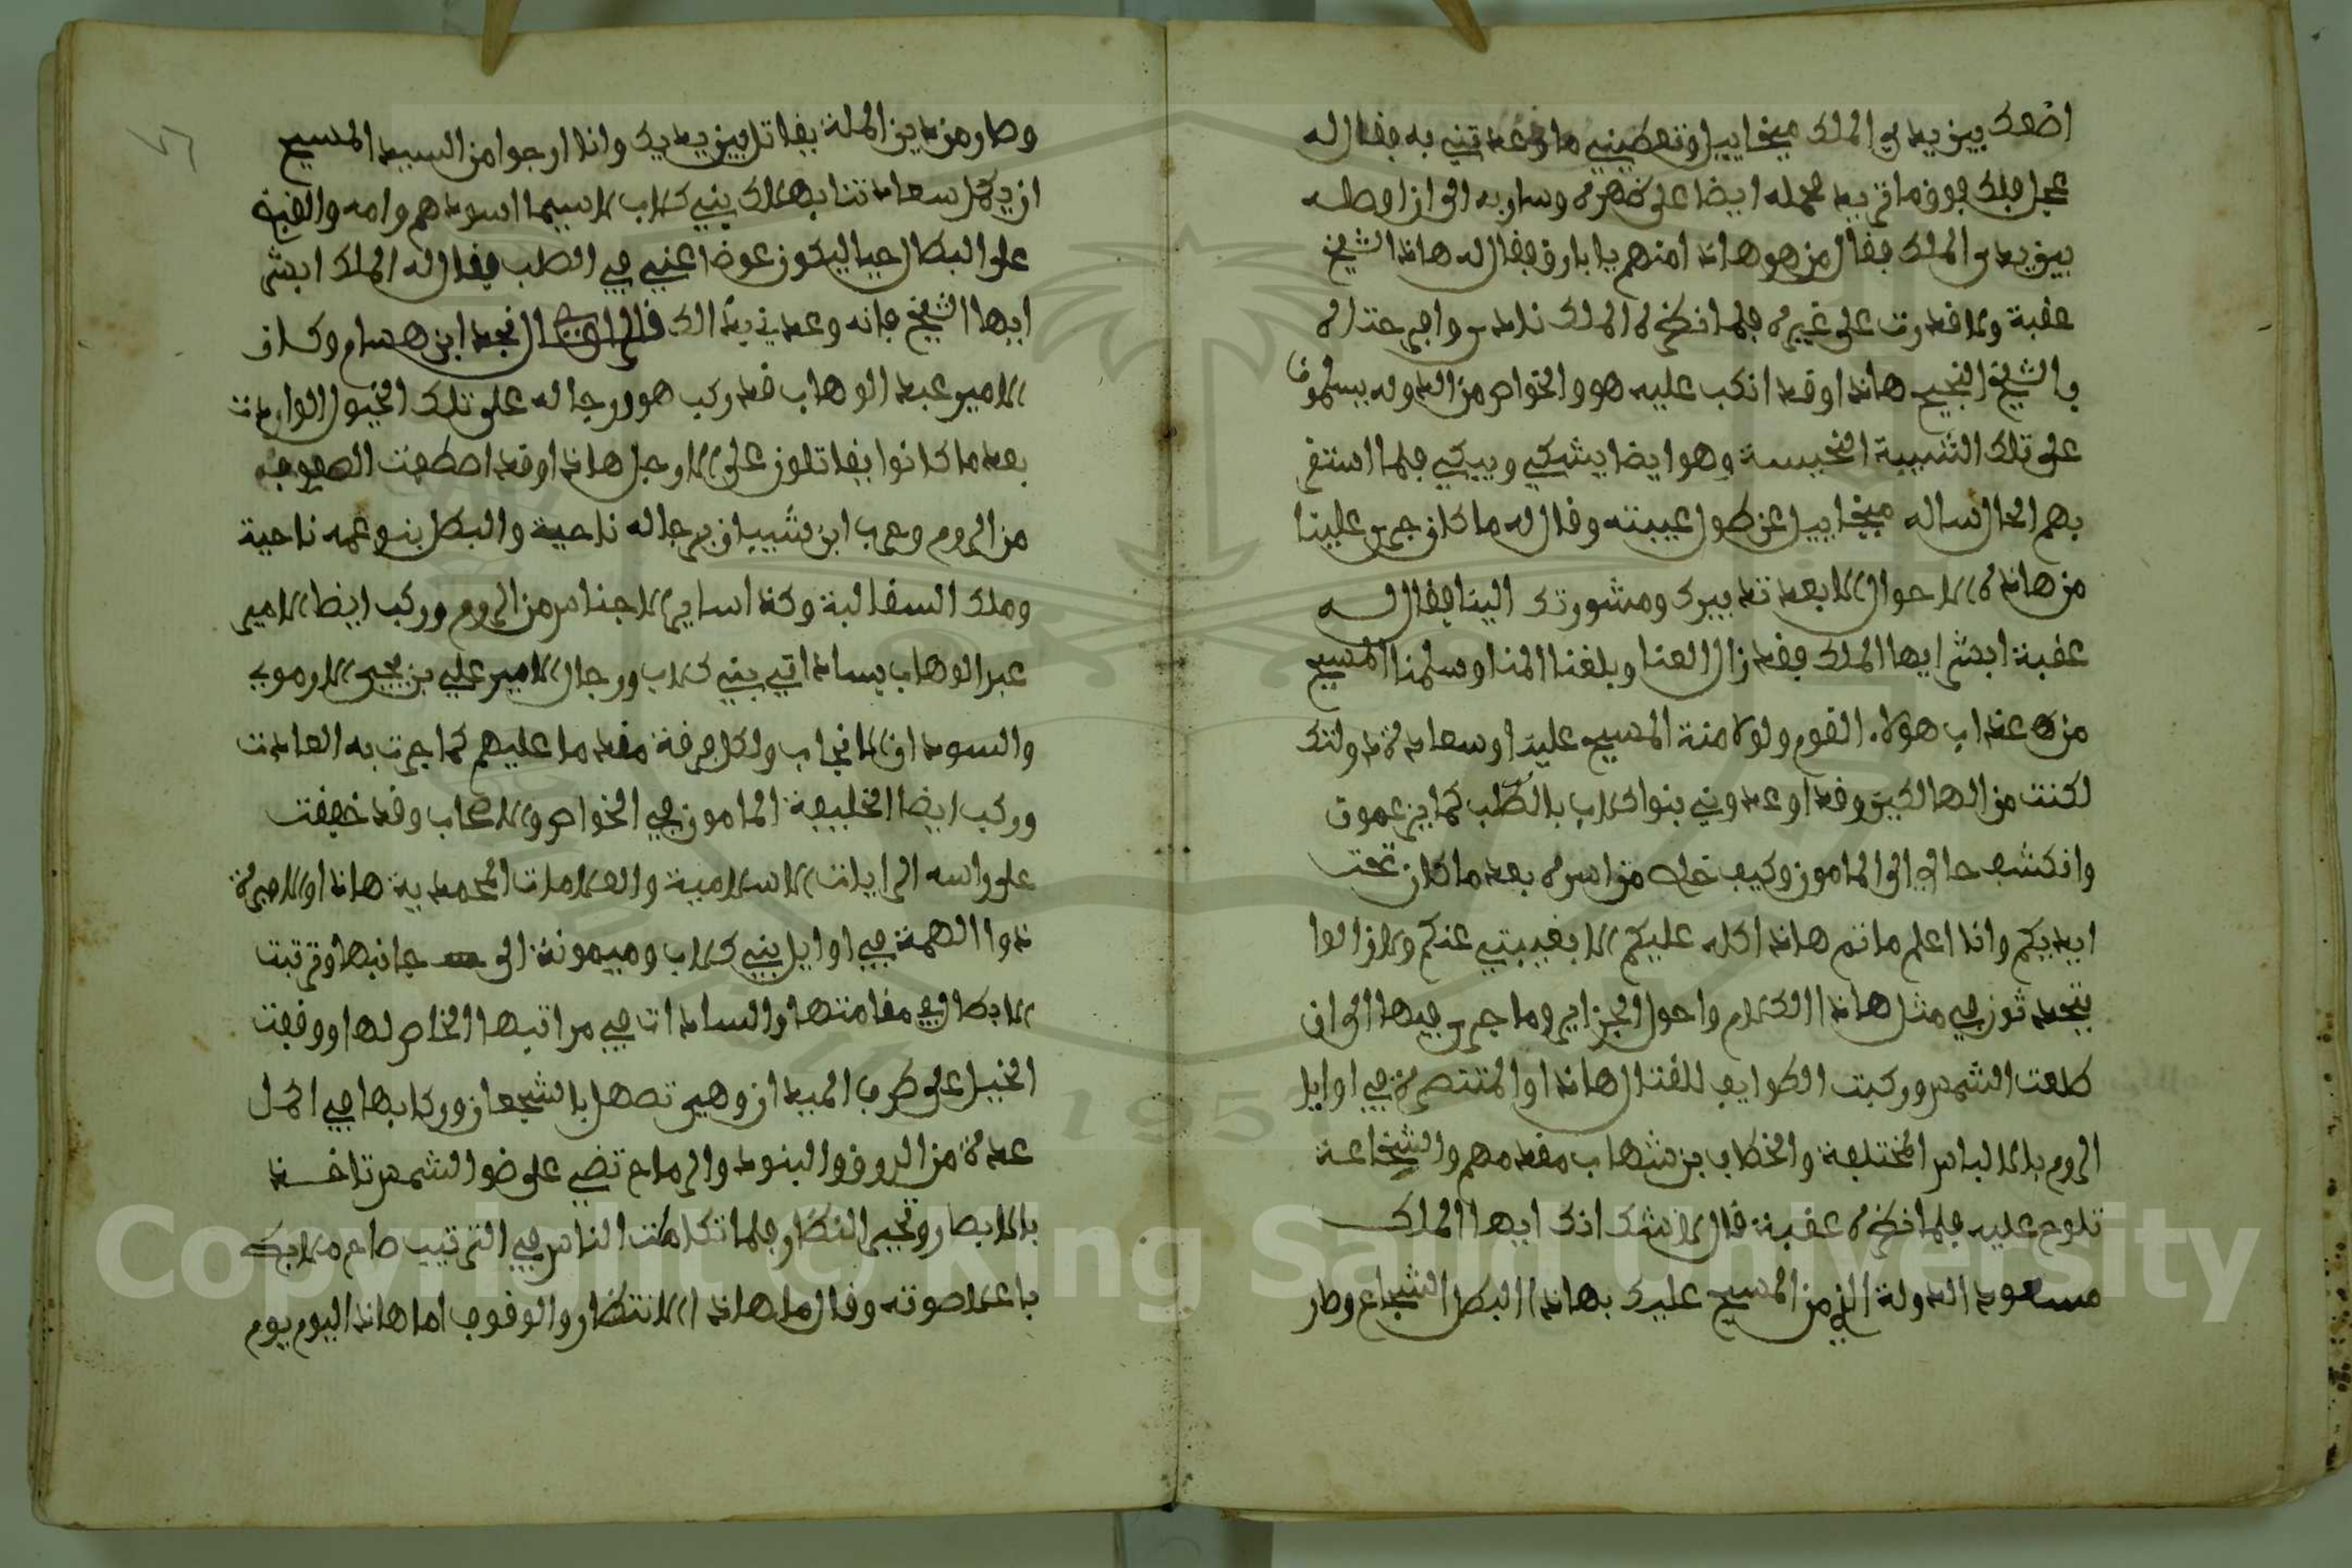 اضعك بين يدي الملك ميخاييل وتعطيني ما وعدتني به فقال له
عجل فلك فوق ما تريد فحمله ايضا على ظهره وسار به الى ان اوصله
بين يدي الملك فقال من هو هاذا منهم يا بارق فقال له هاذا الشيخ
عقبة ولا قدرت على غيره فلما نظره الملك نادى وافرحتاه
بالشيخ النجيح هاذا وقد انكب عليه هو والخواص من الدوله يسلموا
على تلك الشيبة الخبيسة وهو ايضا يشكي ويبكي فلما استقر
بهم الحال ساله ميخاييل عن طول غيبته وقال له ما كان جرى علينا
من هاذه الاحوال الا بعد تدبيرك ومشورتك الينا فقال له
عقبة ابشر ايها الملك فقد زال العنا وبلغنا المنا وسلمنا المسيح
من عذاب هولاء القوم ولولا منة المسيح علينا وسعادة دولتك
لكنت من الهالكين وقد اوعدوني بنوا كلاب بالصلب كما يزعمون
وانكشف حالي الى المامون وكيف خلص من اسره بعد ما كان تحت
ايديكم وانا اعلم ما تم هاذا كله عليكم الا بغيبتي عنكم ولا زالوا
يتحدثون في مثل هاذا الكلام واحوال الجزاير وما جرى فيها الى ان
طلعت الشمس وركبت الطوايف للقتال هاذا والمتنصرة في اوايل
الروم بالالباس المختلفة والخطاب بن شهاب مقدمهم والشجاعة
تلوح عليه فلما نظره عقبة قال لا شك انك ايها الملك
مسعود الدولة الذي من المسيح عليك بهاذا البطل الشجاع وصار
وصار من دين الملة يقاتل بين يديك وانا ارجوا من السيد المسيح
ان يكمل سعادتنا بهلاك بني كلاب لا سيما اسودهم وامه والقبض
على البطال حيا ليكون عوضا عني في الصلب فقال له الملك ابشر
ايها الشيخ فانه وعدني بذالك قال الراوي النجد ابن هشام وكان
الامير عبد الوهاب قد ركب هو ورجاله على تلك الخيول الواردات
بعد ما كانوا يقاتلون على الارجل هاذا وقد اصطفت الصفوف
من الروم وعرب ابن شبيب ورجاله ناحية والبطل بنو عمه ناحية
وملك السقالبة وكذا ساير الاجناس من الروم وركب ايضا الامير
عبد الوهاب بسادات بني كلاب ورجال الامير علي بن يحيى الارموي
والسودان الانجاب ولكل فرقة مقدما عليهم كما جرت به العادت
وركب ايضا الخليفة المامون في الخواص والاصحاب وقد خفقت
على راسه الرايات الاسلامية والعلامات المحمدية هاذا والاميرة
ذوا الهمة في اوايل بني كلاب وميمونة الى جانبها وترتبت
الابطال في مقامتها والسادات في مراتبها الخاص لها ووقفت
الخيل على طرف الميدان وهي تصهل بالشجعان وركابها في اكمل
عدة من الدروق والبنود والرماح تضي على ضو الشمس تاخذ
بالابصار وتحير النظار فلما تكاملت الناس في الترتيب صاح ملابك
باعلا صوته وقال ما هاذا الانتظار والوقوف اما هاذا اليوم يوم